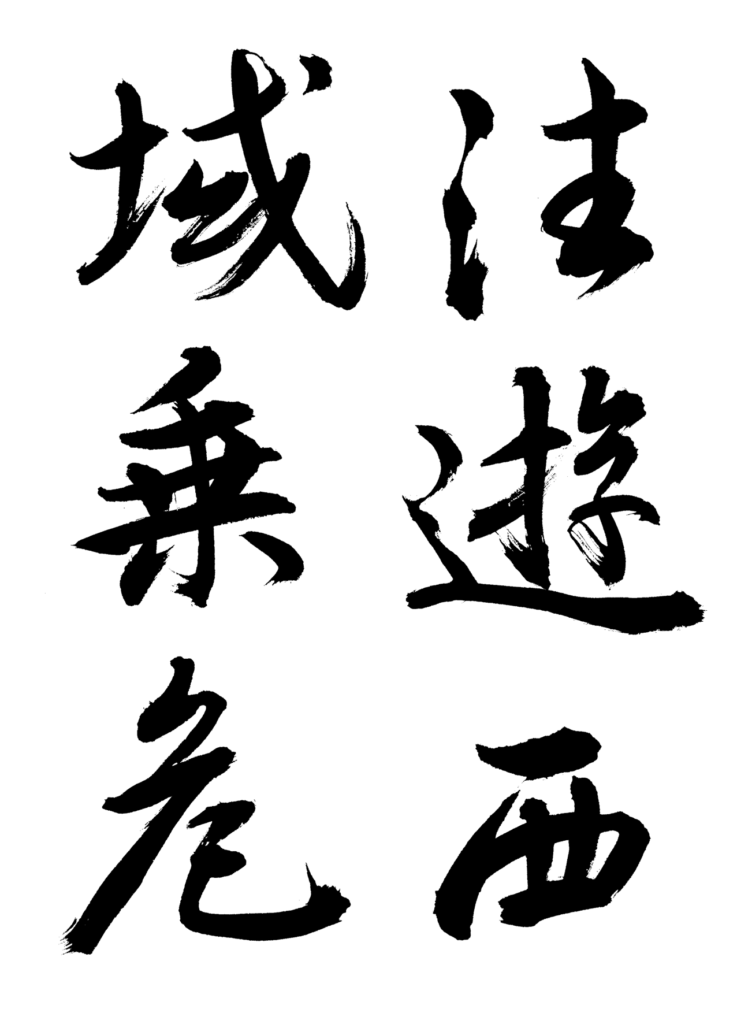 往遊西
域乗危